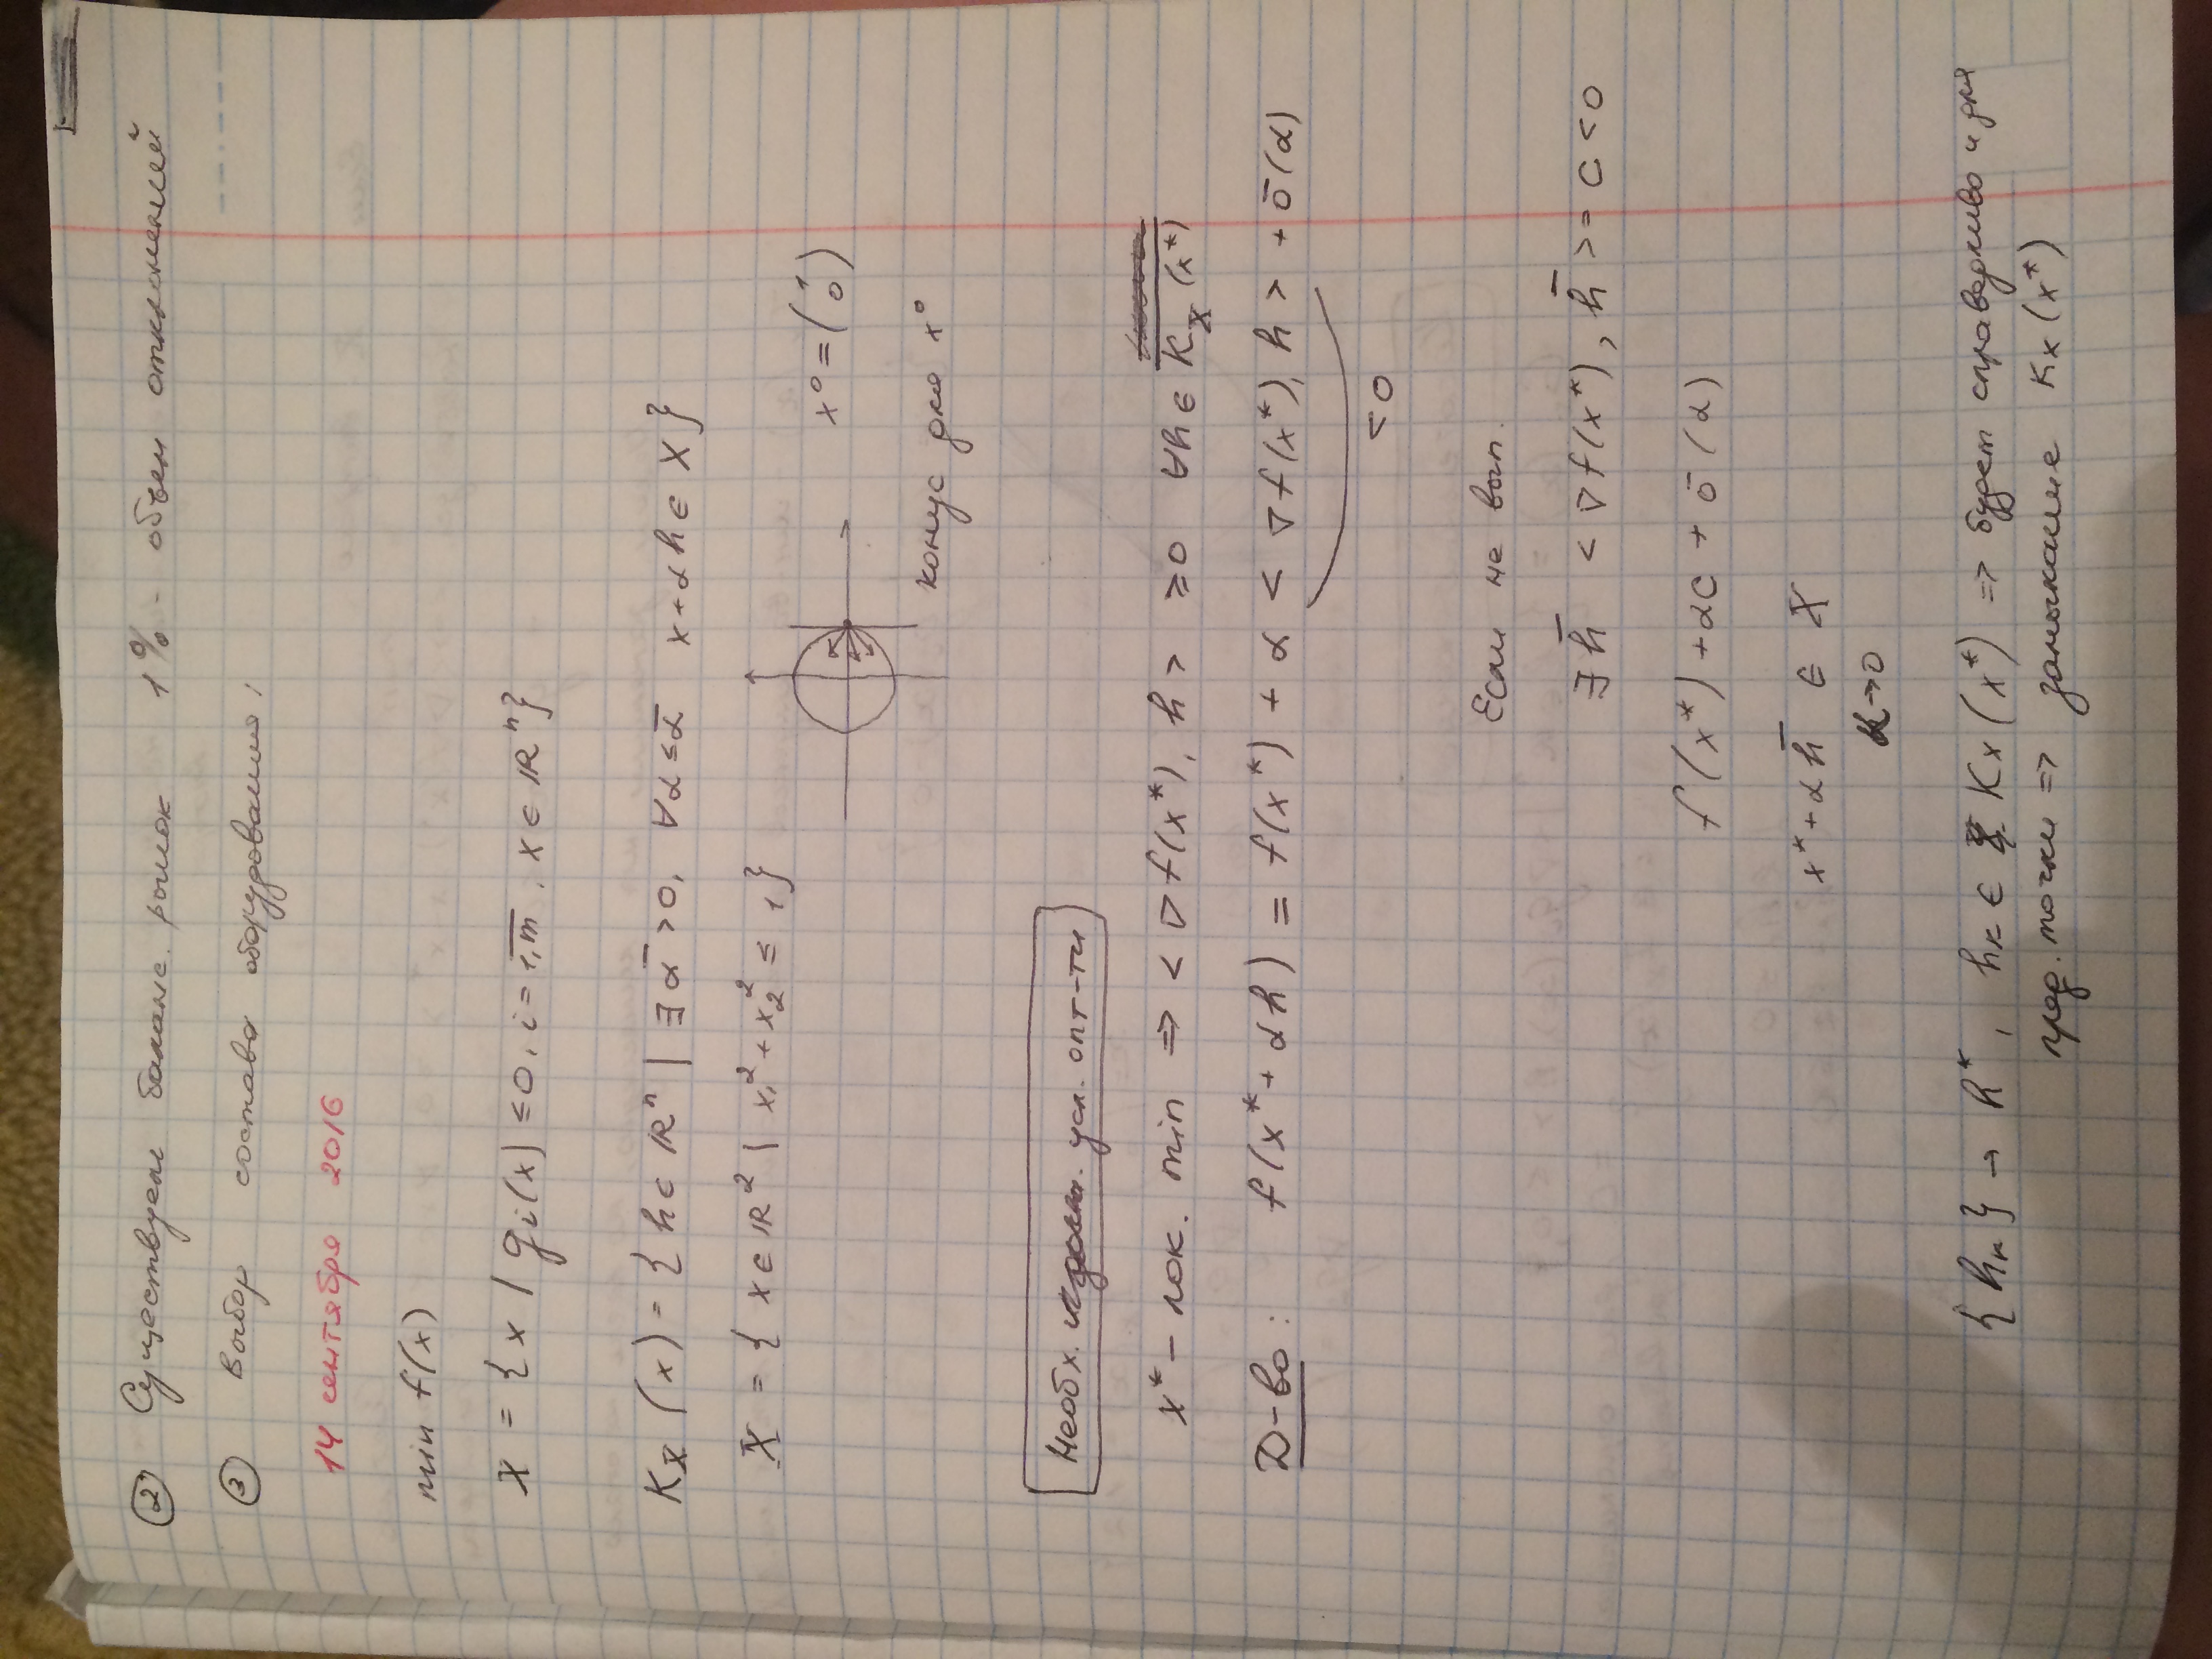 ② Существует баланс. рынок 1% - объем отклонений
③ Выбор состава оборудования;
14 сентября 2016
min f(x)
X = { x / gᵢ(x) ≤ 0, i = 1,m̅, x ∈ ℝⁿ}
K_X (x) = { h ∈ ℝⁿ | ∃ α̅ > 0, ∀α ≤ α̅ x + αh ∈ X }
X = { x ∈ ℝ² | x₁² + x₂² ≤ 1}
x⁰ = (1 0)
конус для x⁰
Необх. усл. опт-ти
x* – лок. min ⇒ < ∇f(x*), h > ≥ 0 ∀h ∈ K̅_X̅ (x*)
Д-во: f(x* + αh) = f(x*) + α < ∇f(x*), h > + ō(α)
< 0
Если не вып.
∃ h̅ < ∇f(x*), h̅ > = C < 0
f(x*) + αC + ō(α)
x* + αh̅ ∈ X
α→0
{hₖ} → h*, hₖ ∈ Kₓ(x*) ⇒ будет справедливо и для
пред. точки ⇒ замыкание Kₓ(x*)